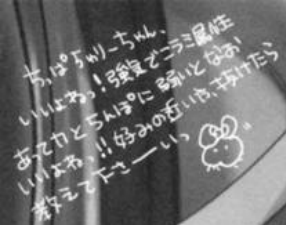 ちっぱちゃりーちゃん、
いいよねっ!強気でニラミ属性
あってカとちんぽに弱いとなお
いいよねっ!!好みの近い や、あけたら
教えて下さーいっ